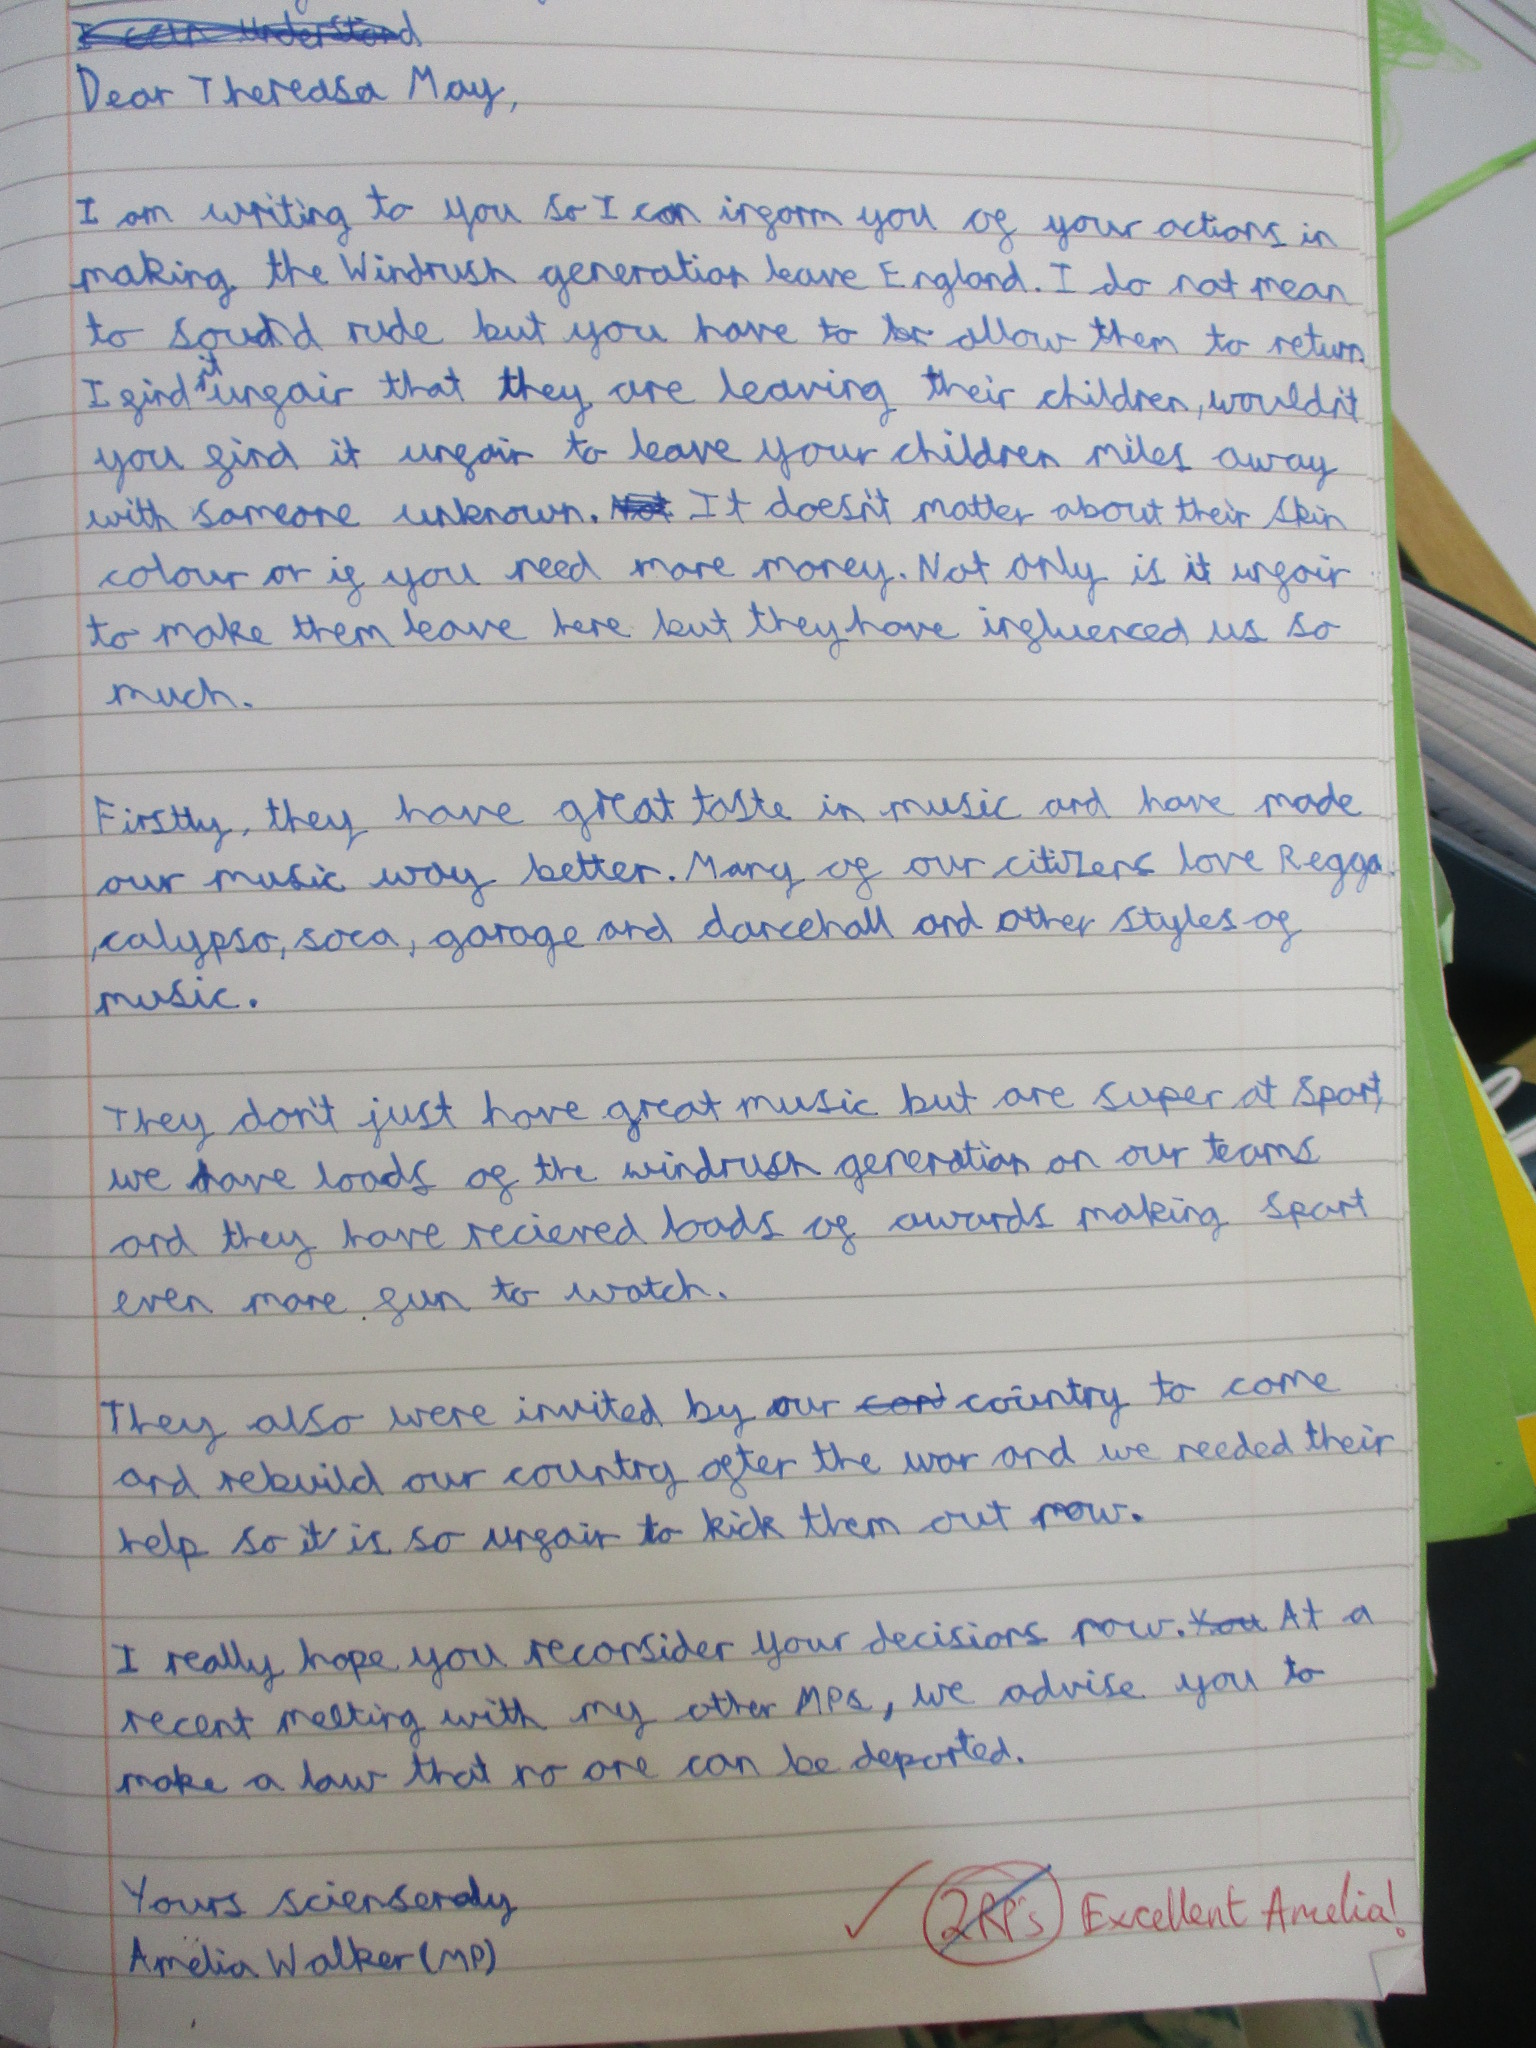 I can understand
Dear Thereasa May,
I am writing to you so I can inform you of your actions in
making the Windrush generation leave England. I do not mean
to sound rude but you have to be allow them to return
I find it unfair that they are leaving their children, wouldn't
you find it unfair to leave your children miles away
with someone unknown. Not It doesn't matter about their skin
colour or if you need more money. Not only is it unfair
to make them leave here but they have influenced us so
much.
Firstly, they have great taste in music and have made
our music way better. Many of our citizens love Regga
,calypso, soca, garage and dancehall and other styles of
music.
They don't just have great music but are super at sport,
we have loads of the windrush generation on our teams
and they have recieved loads of awards making sport
even more fun to watch.
They also were invited by our con country to come
and rebuild our country after the war and we needed their
help so it is so unfair to kick them out now.
I really hope you reconsider your decisions now. You At a
recent meeting with my other MPs, we advise you to
make a law that no one can be deported.
Yours scienserely
Amelia Walker (MP)
2RP's Excellent Amelia!